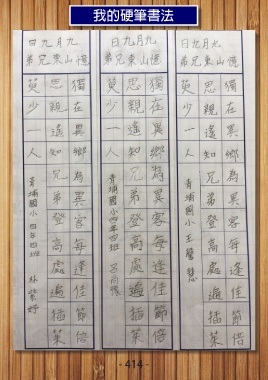 我的硬筆書法
九月九日
憶山東兄弟
獨在異鄉為異客每逢佳節倍
思親遙知兄弟登高處遍插茱
萸少一人
青埔國小 王馨慧
九月九日
憶山東兄弟
獨在異鄉為異客每逢佳節倍
思親遙知兄弟登高處遍插茱
萸少一人
青埔國小四年四班
九月九日
憶山東兄弟
獨在異鄉為異客每逢佳節倍
思親遙知兄弟登高處遍插茱
萸少一人
青埔國小 四年四班 林
- 414 -